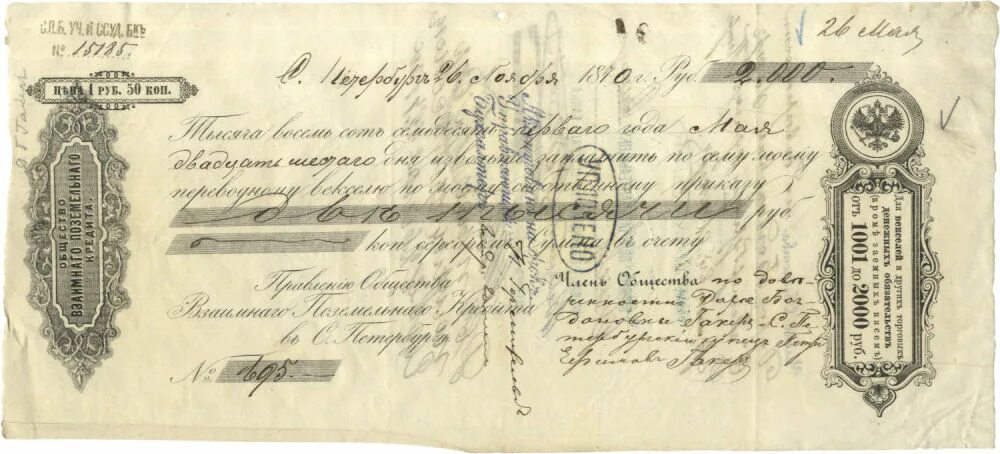 С.П.Б. УЧ. И ССУД. БКЪ
№ 15185.
26 Мая
ЦѢНА 1 РУБ. 50 КОП.
С. Петербургъ 26 Ноября 1870 г. Руб. 2.000.
Тысяча восемь сотъ семьдесятъ перваго года Мая
двадцать шестаго дня извольте заплатить по сему моему
переводному векселю по моему собственному приказу
двѣ тысячи руб.
коп. серебромъ Сумма въ счету
Правленію Общества
Взаимнаго Поземельнаго Кредита
въ С. Петербургѣ
№ 695.
Членъ Общества по довѣ-
ренности Дарьи Бог-
дановны Гакенъ С. Пе-
тербургскій купецъ
Гакенъ
УПЛАЧЕНО
ОБЩЕСТВО
ВЗАИМНАГО ПОЗЕМЕЛЬНАГО
КРЕДИТА.
Для векселей и другихъ торговыхъ
денежныхъ обязательствъ
(кромѣ заемныхъ писемъ)
отъ 1001 до 2000 руб.